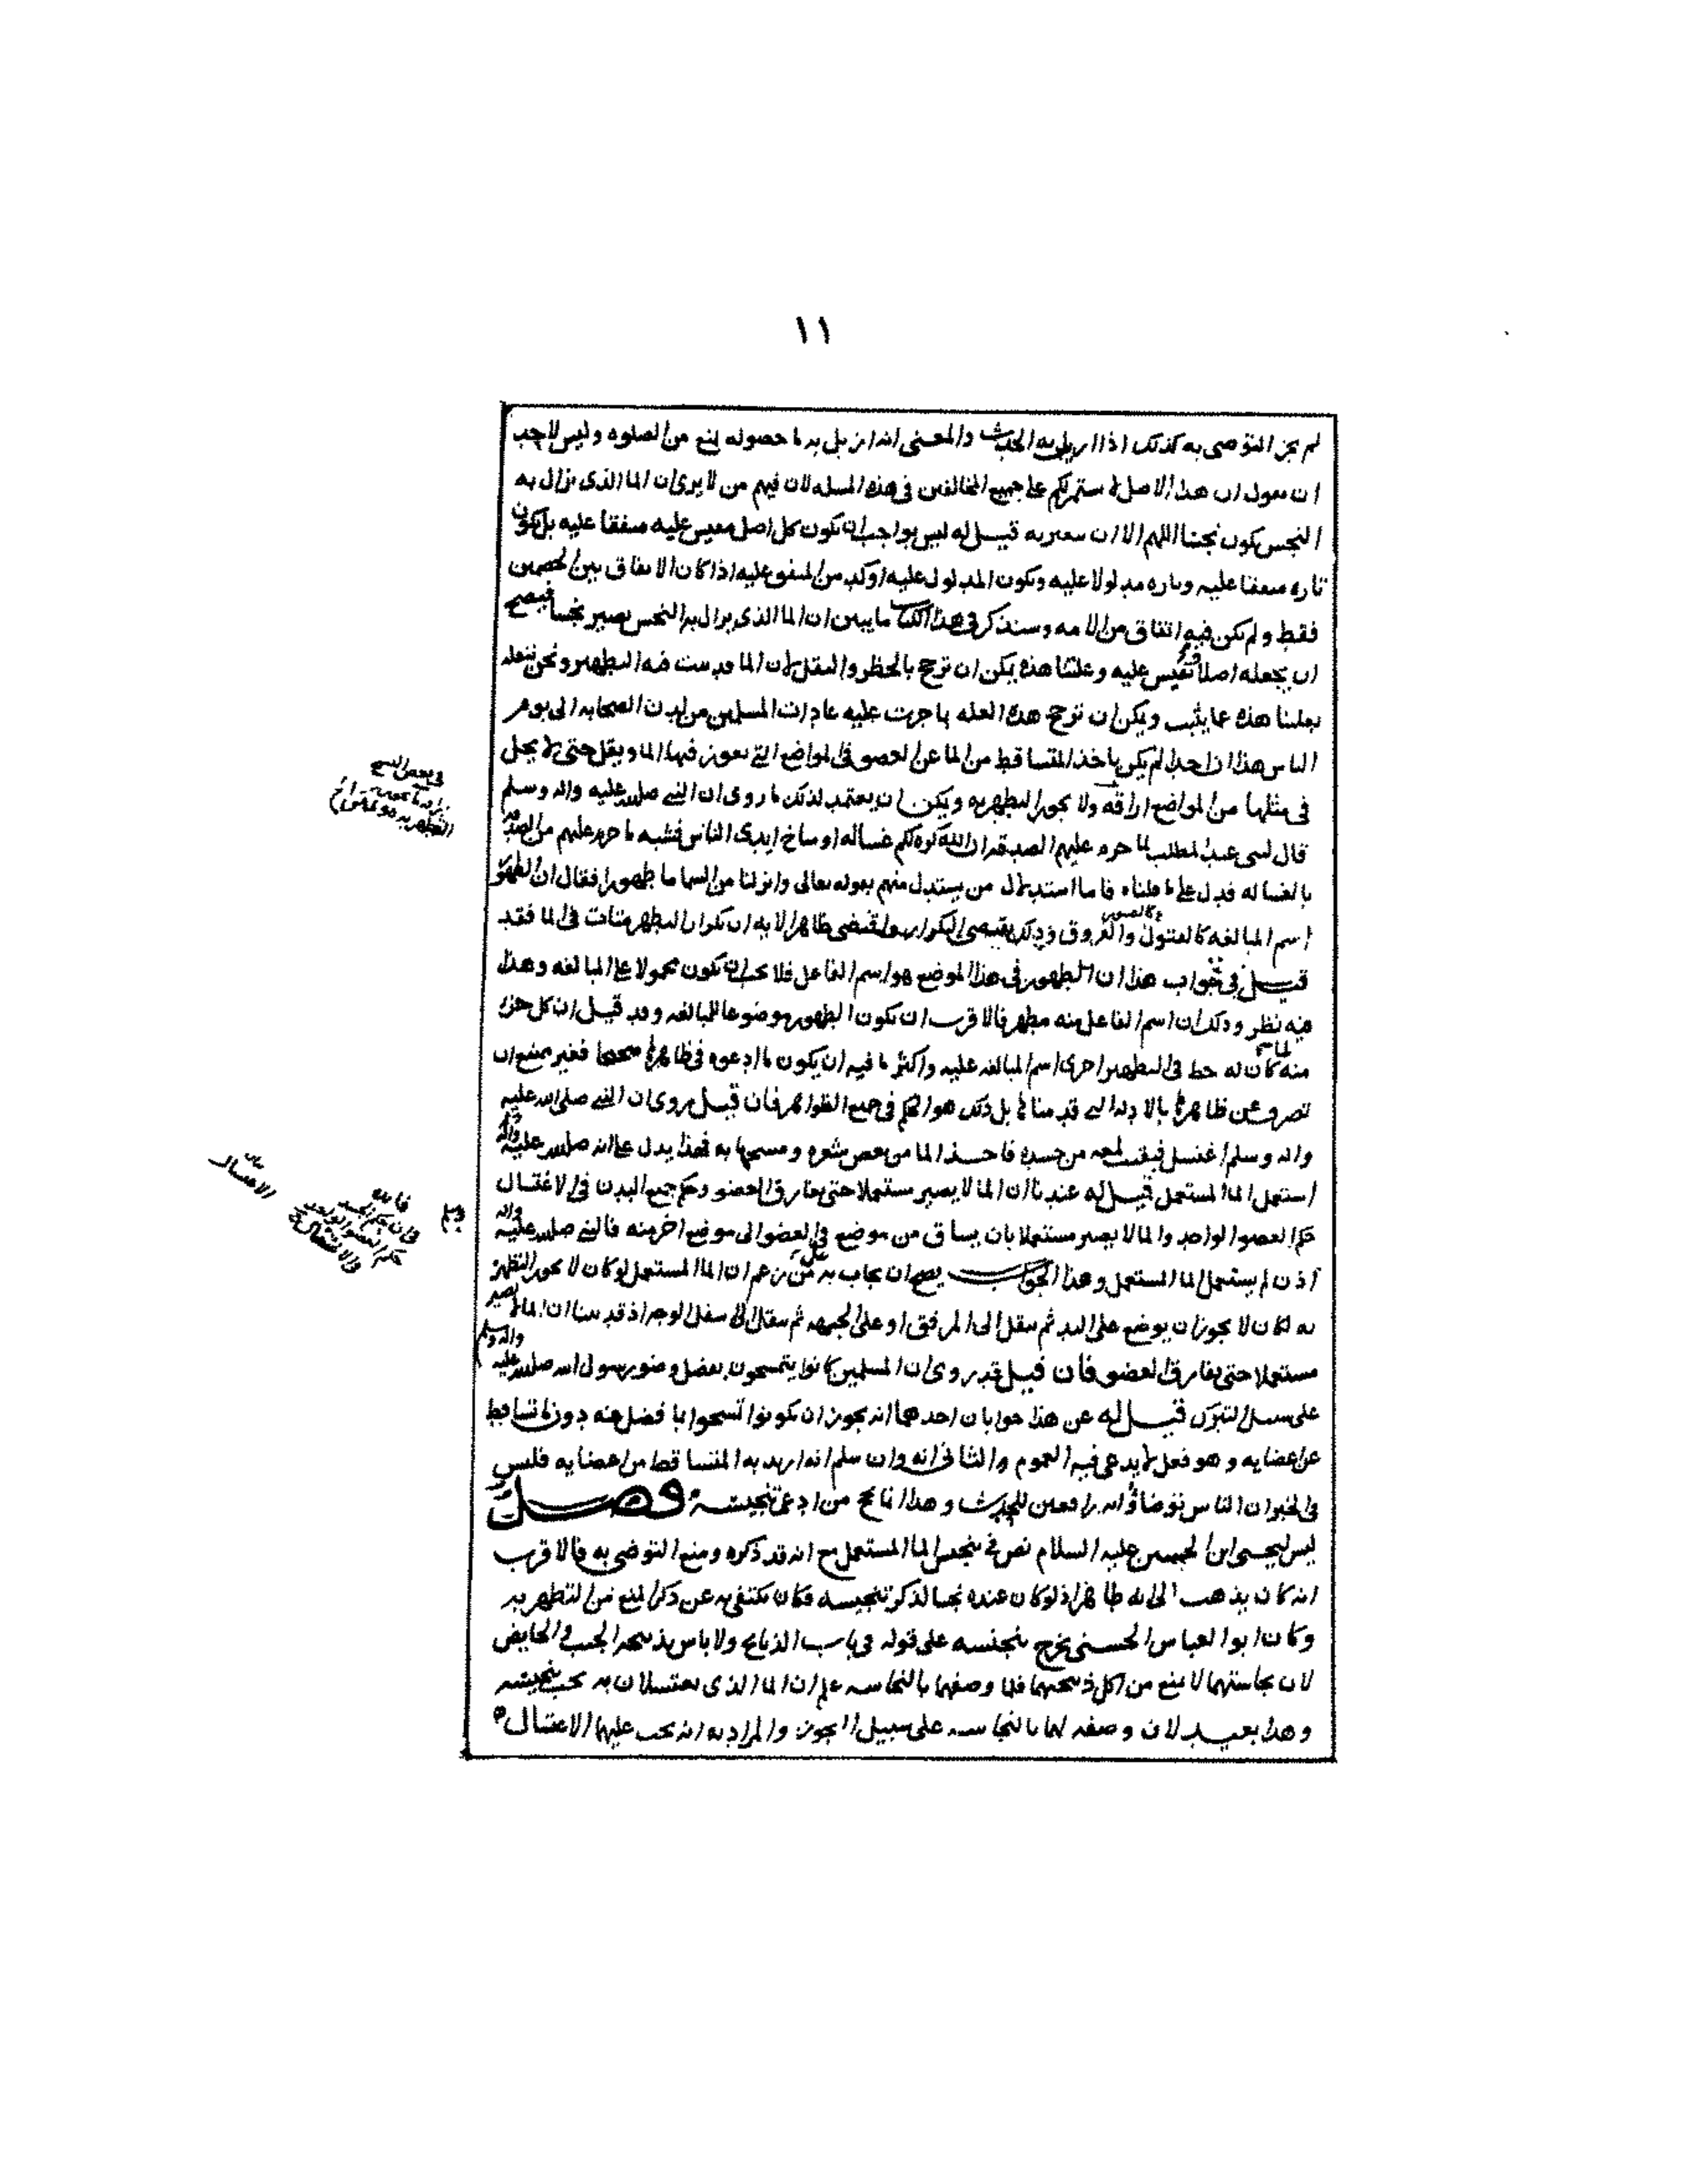 ١١
لم يجز التوضي به كذلك اذا ازيل به الحدث والمعنى انه ازيل به ما حصوله يمنع من الصلوه وليس لاحد
ان يقول ان هذا الاصل لا يستمر لكم على جميع المخالفين في هذه المسله لان فيهم من لا يرى ان الما الذي يزال به
النجس يكون نجسا اللهم الا ان قيل له ليس بواجب ان يكون كل اصل نقيس عليه متفقا عليه بل يكون
تاره متفقا عليه وتاره مدلولا عليه ويكون المدلول عليه اوكد من المتفق عليه اذا كان الاتفاق بين الخصمين
فقط ولم يكن فيه اتفاق من الامه وسنذكر في هذا الكتاب ما يبين ان الما الذي يزال به النجس يصير نجسا فيصح
ان يجعله اصلا نقيس عليه وعلتنا هذه يمكن ان ترجح بالحظر والنقل لان الما قد ثبت فيه التطهير ونحن ننقله
بعلتنا هذه عما يثبت ويمكن ان ترجح هذه العله بما جرت عليه عادات المسلمين من لدن الصحابه الى يوم
الناس هذا ان احدا لم يكن ياخذ المتساقط من الما عن العضو في المواضع التي يعوز فيها الما ويقل حتى لا يحل
في مثلها من المواضع اراقته ولا يجوز التطهر به ويمكن ان يعتمد لذلك ما روي ان النبي صلى الله عليه واله وسلم
قال لبني عبد المطلب لما حرم عليهم الصدقه ان الله كره لكم غساله اوساخ ايدي الناس فشبه ما حرم عليهم من الصدقه
بالغساله فدل على ما قلناه فاما استدلال من يستدل منهم بقوله تعالى وانزلنا من السما ما طهورا فقال ان الطهور
اسم المبالغه كالقتول والفروق وذلك يقتضي التكرار واقتضى ظاهر الايه ان تكرار التطهر متات في الما فقد
قيل في جواب هذا ان الطهور في هذا الموضع هو اسم الفاعل فلا يجب ان يكون محمولا على المبالغه وهذا
فيه نظر وذلك ان اسم الفاعل منه مطهر فالاقرب ان يكون الطهور موضوعا للمبالغه وقد قيل ان كل جزء
منه لما كان له حظ في التطهير اجرى اسم المبالغه عليه واكثر ما فيه ان يكون ما ادعوه في ظاهره صحيحا فغير ممتنع ان
تصرف عن ظاهره بالادله التي قدمناها بل ذلك هو الحكم في جميع الظواهر فان قيل روي ان النبي صلى الله عليه
واله وسلم اغتسل فبقيت لمعه من جسده فاخذ الما من بعض شعره ومسحها به فهذا يدل على انه صلى الله عليه واله
استعمل الما المستعمل قيل له عندنا ان الما لا يصير مستعملا حتى يفارق العضو وحكم جميع البدن في الاغتسال
حكم العضو الواحد والما لا يصير مستعملا بان يساق من موضع في العضو الى موضع اخر منه فالنبي صلى الله عليه واله
اذن لم يستعمل الما المستعمل وهذا الجواب يصح ان يجاب به على من زعم ان الما المستعمل لو كان لا يجوز التطهر
به لكان لا يجوز ان يوضع على اليد ثم ينقل الى المرفق او على الجبهه ثم ينقل الى اسفل الوجه اذ قد بينا ان الما لا يصير
مستعملا حتى يفارق العضو فان قيل قد روي ان المسلمين كانوا يتمسحون بفضل وضو رسول الله صلى الله عليه واله وسلم
على سبيل التبرك قيل له عن هذا جوابان احدهما انه يجوز ان يكونوا تمسحوا بما فضل منه دون ما تساقط
عن اعضايه وهو فعل لا يدعى فيه العموم والثاني انه وان سلم انه اريد به المتساقط من اعضايه فليس
في الخبر ان الناس توضاوا به رافعين للحدث وهذا ناجع من ادعى تنجيسه فصل
ليس ليحيى ابن الحسين عليه السلام نص في تنجيس الما المستعمل مع انه قد ذكره ومنع التوضي به فالاقرب
انه كان يذهب الى انه طاهر اذ لو كان عنده نجسا لذكر تنجيسه فكان يكتفي به عن ذكر المنع من التطهر به
وكان ابو العباس الحسني يخرج تنجيسه على قوله في باب الذبايح ولا باس بذبيحه الجنب والحايض
لان نجاستهما لا تمنع من اكل ذبيحتهما فلما وصفهما بالنجاسه علم ان الما الذي يغتسلان به يجب تنجيسه
وهذا بعيد لان وصفه لهما بالنجاسه على سبيل التجوز والمراد به انه يجب عليهما الاغتسال
في بعض النسخ
التطهر به
وسلم
فايده
في ان حكم الجسد
حكم العضو الواحد
الاغتسال